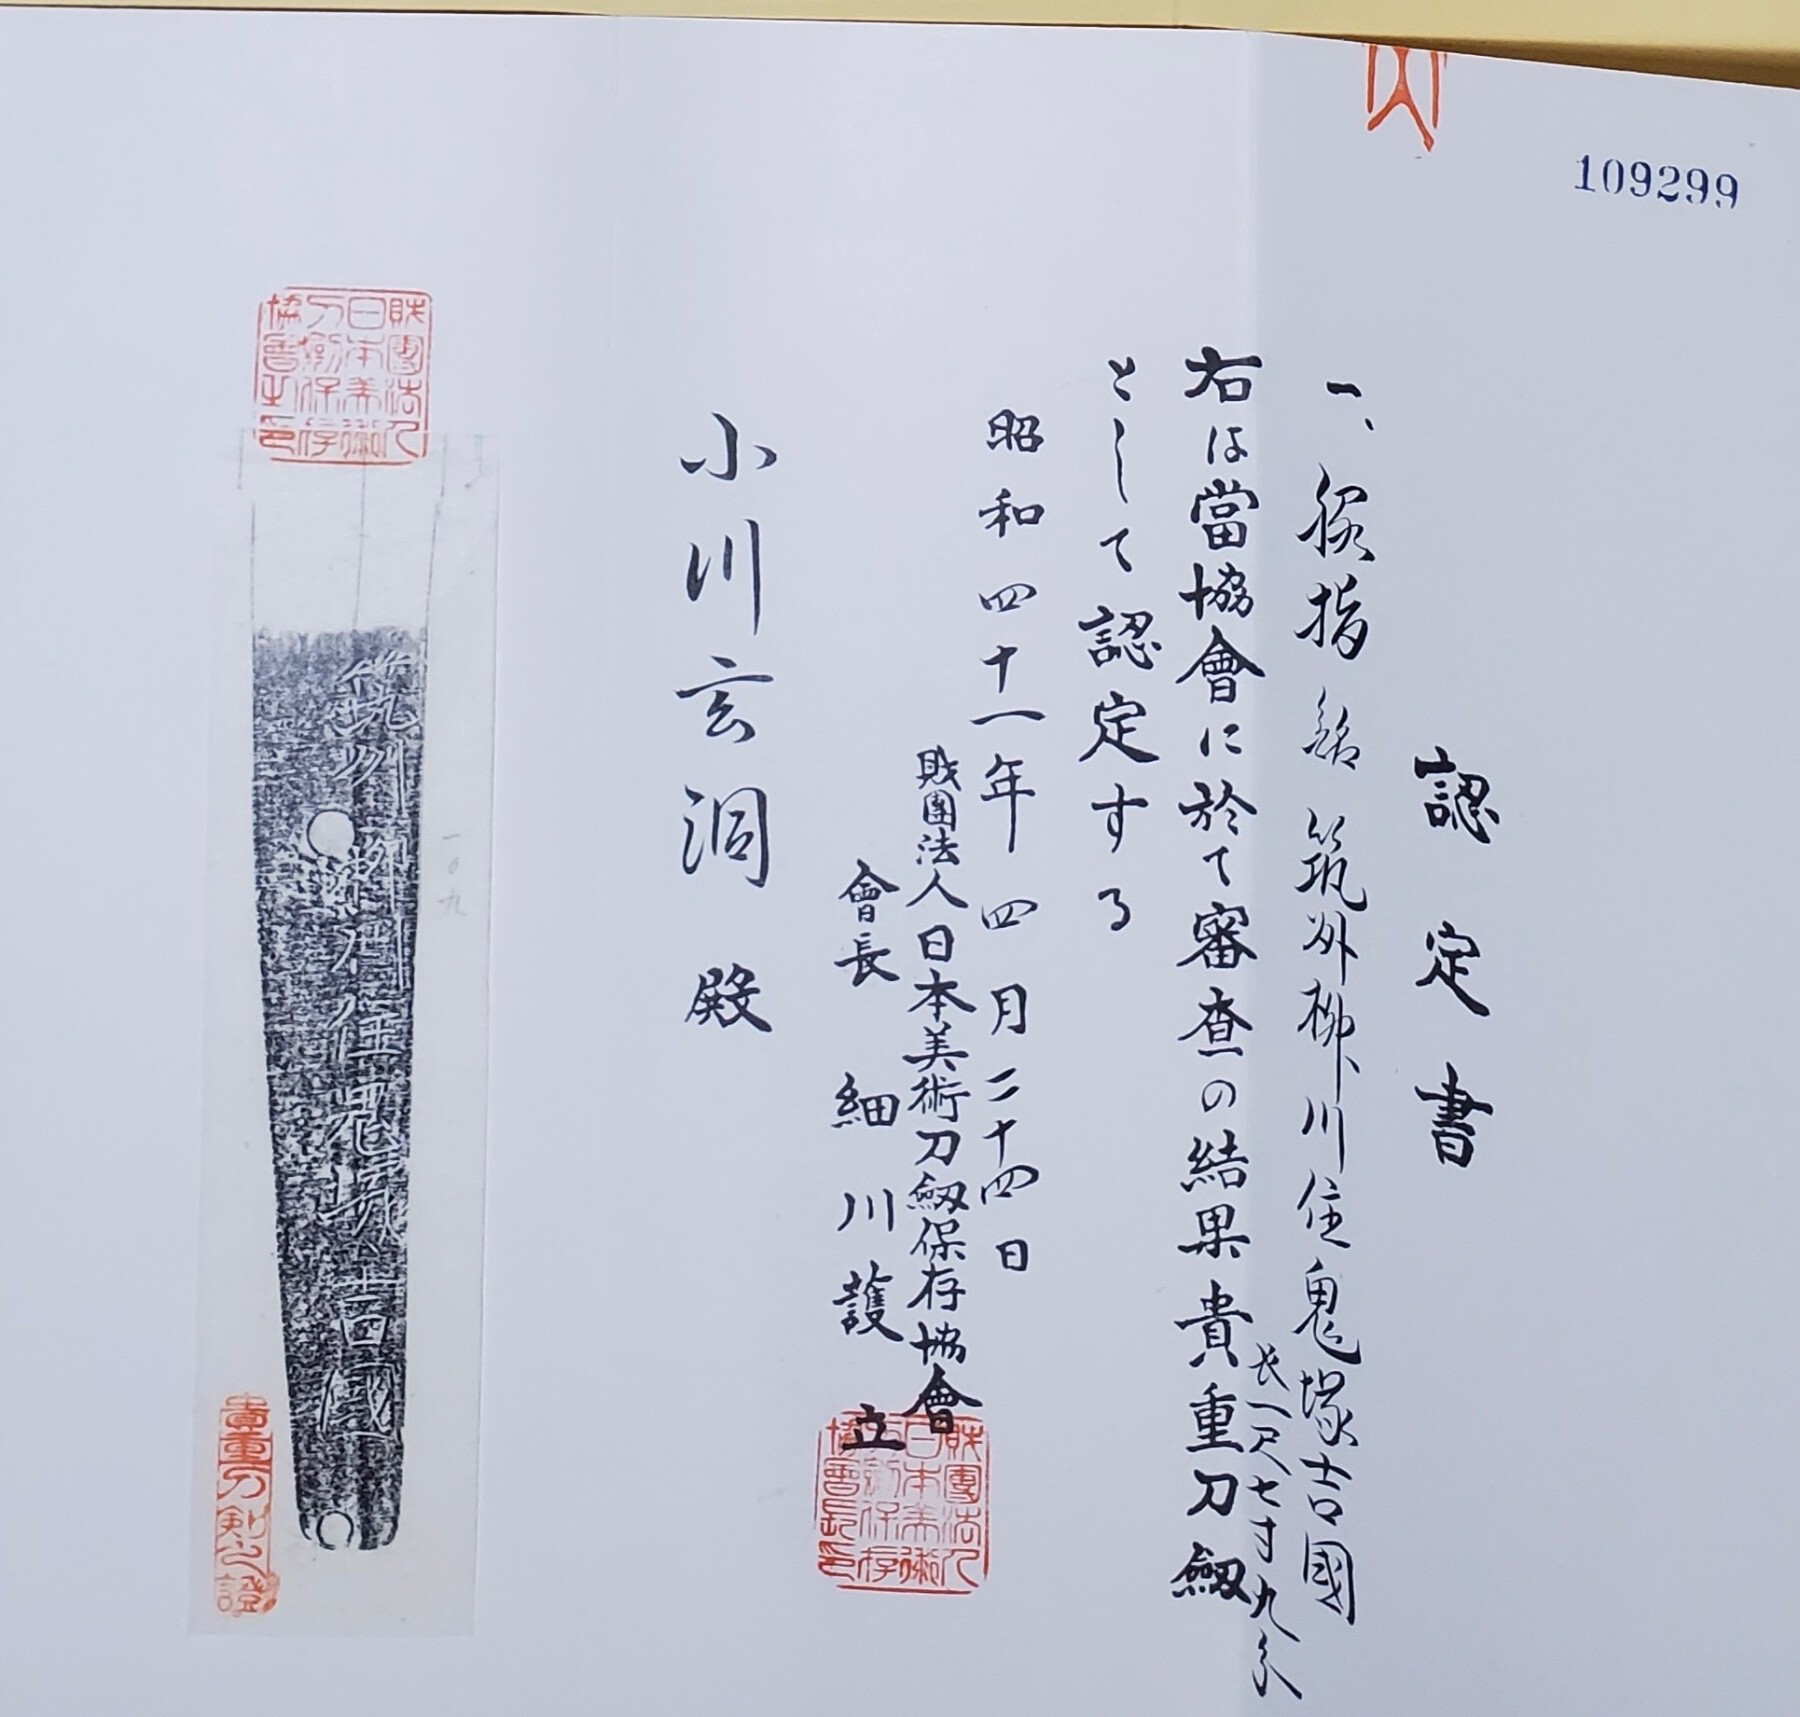 109299
認定書
一、脇指 銘 筑州柳川住鬼塚吉國
長一尺七寸九分
右は當協會に於て審査の結果貴重刀劔
として認定する
昭和四十一年四月二十四日
財團法人日本美術刀劔保存協會
會長 細川護立
財團法人日本美術刀劔保存協會長印
小川玄洞 殿
財團法人日本美術刀劔保存協會之印
一〇九
筑州柳川住鬼塚吉國
貴重刀剣之證